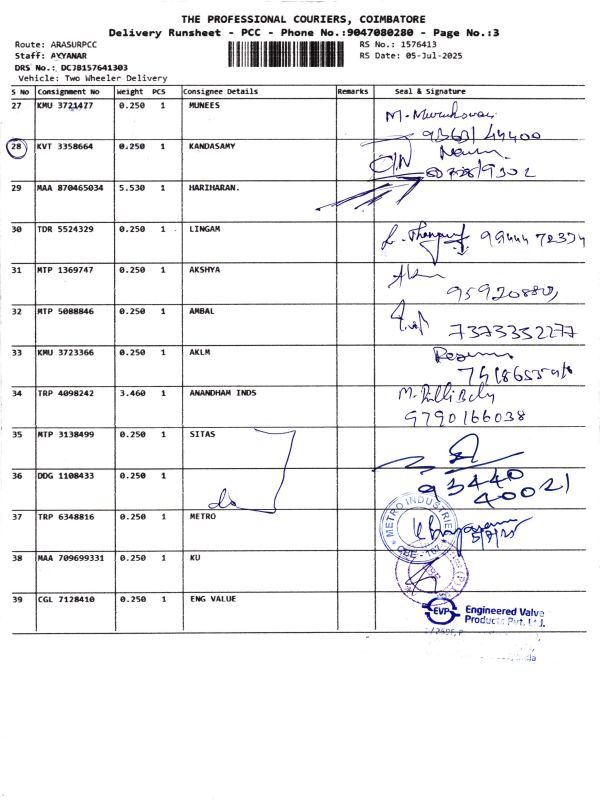 THE PROFESSIONAL COURIERS, COIMBATORE
Delivery Runsheet - PCC - Phone No.:9047080280 - Page No.:3
Route: ARASURPCC RS No.: 1576413
Staff: AYYANAR RS Date: 05-Jul-2025
DRS No.: DCJB157641303
Vehicle: Two Wheeler Delivery
S No Consignment No Weight PCS Consignee Details Remarks Seal & Signature
27 KMU 3721477 0.250 1 MUNEES
28 KVT 3358664 0.250 1 KANDASAMY
29 MAA 870465034 5.530 1 HARIHARAN.
30 TDR 5524329 0.250 1 LINGAM
31 MTP 1369747 0.250 1 AKSHYA
32 MTP 5088846 0.250 1 AMBAL
7373352277
33 KMU 3723366 0.250 1 AKLM
34 TRP 4098242 3.460 1 ANANDHAM INDS
9790166038
35 MTP 3138499 0.250 1 SITAS
36 DDG 1108433 0.250 1 do
93440
40021
37 TRP 6348816 0.250 1 METRO METRO INDUSTRIES
CBE - 107
38 MAA 709699331 0.250 1 KU
39 CGL 7128410 0.250 1 ENG VALUE
EVP Engineered Valve
Products Pvt. Ltd.